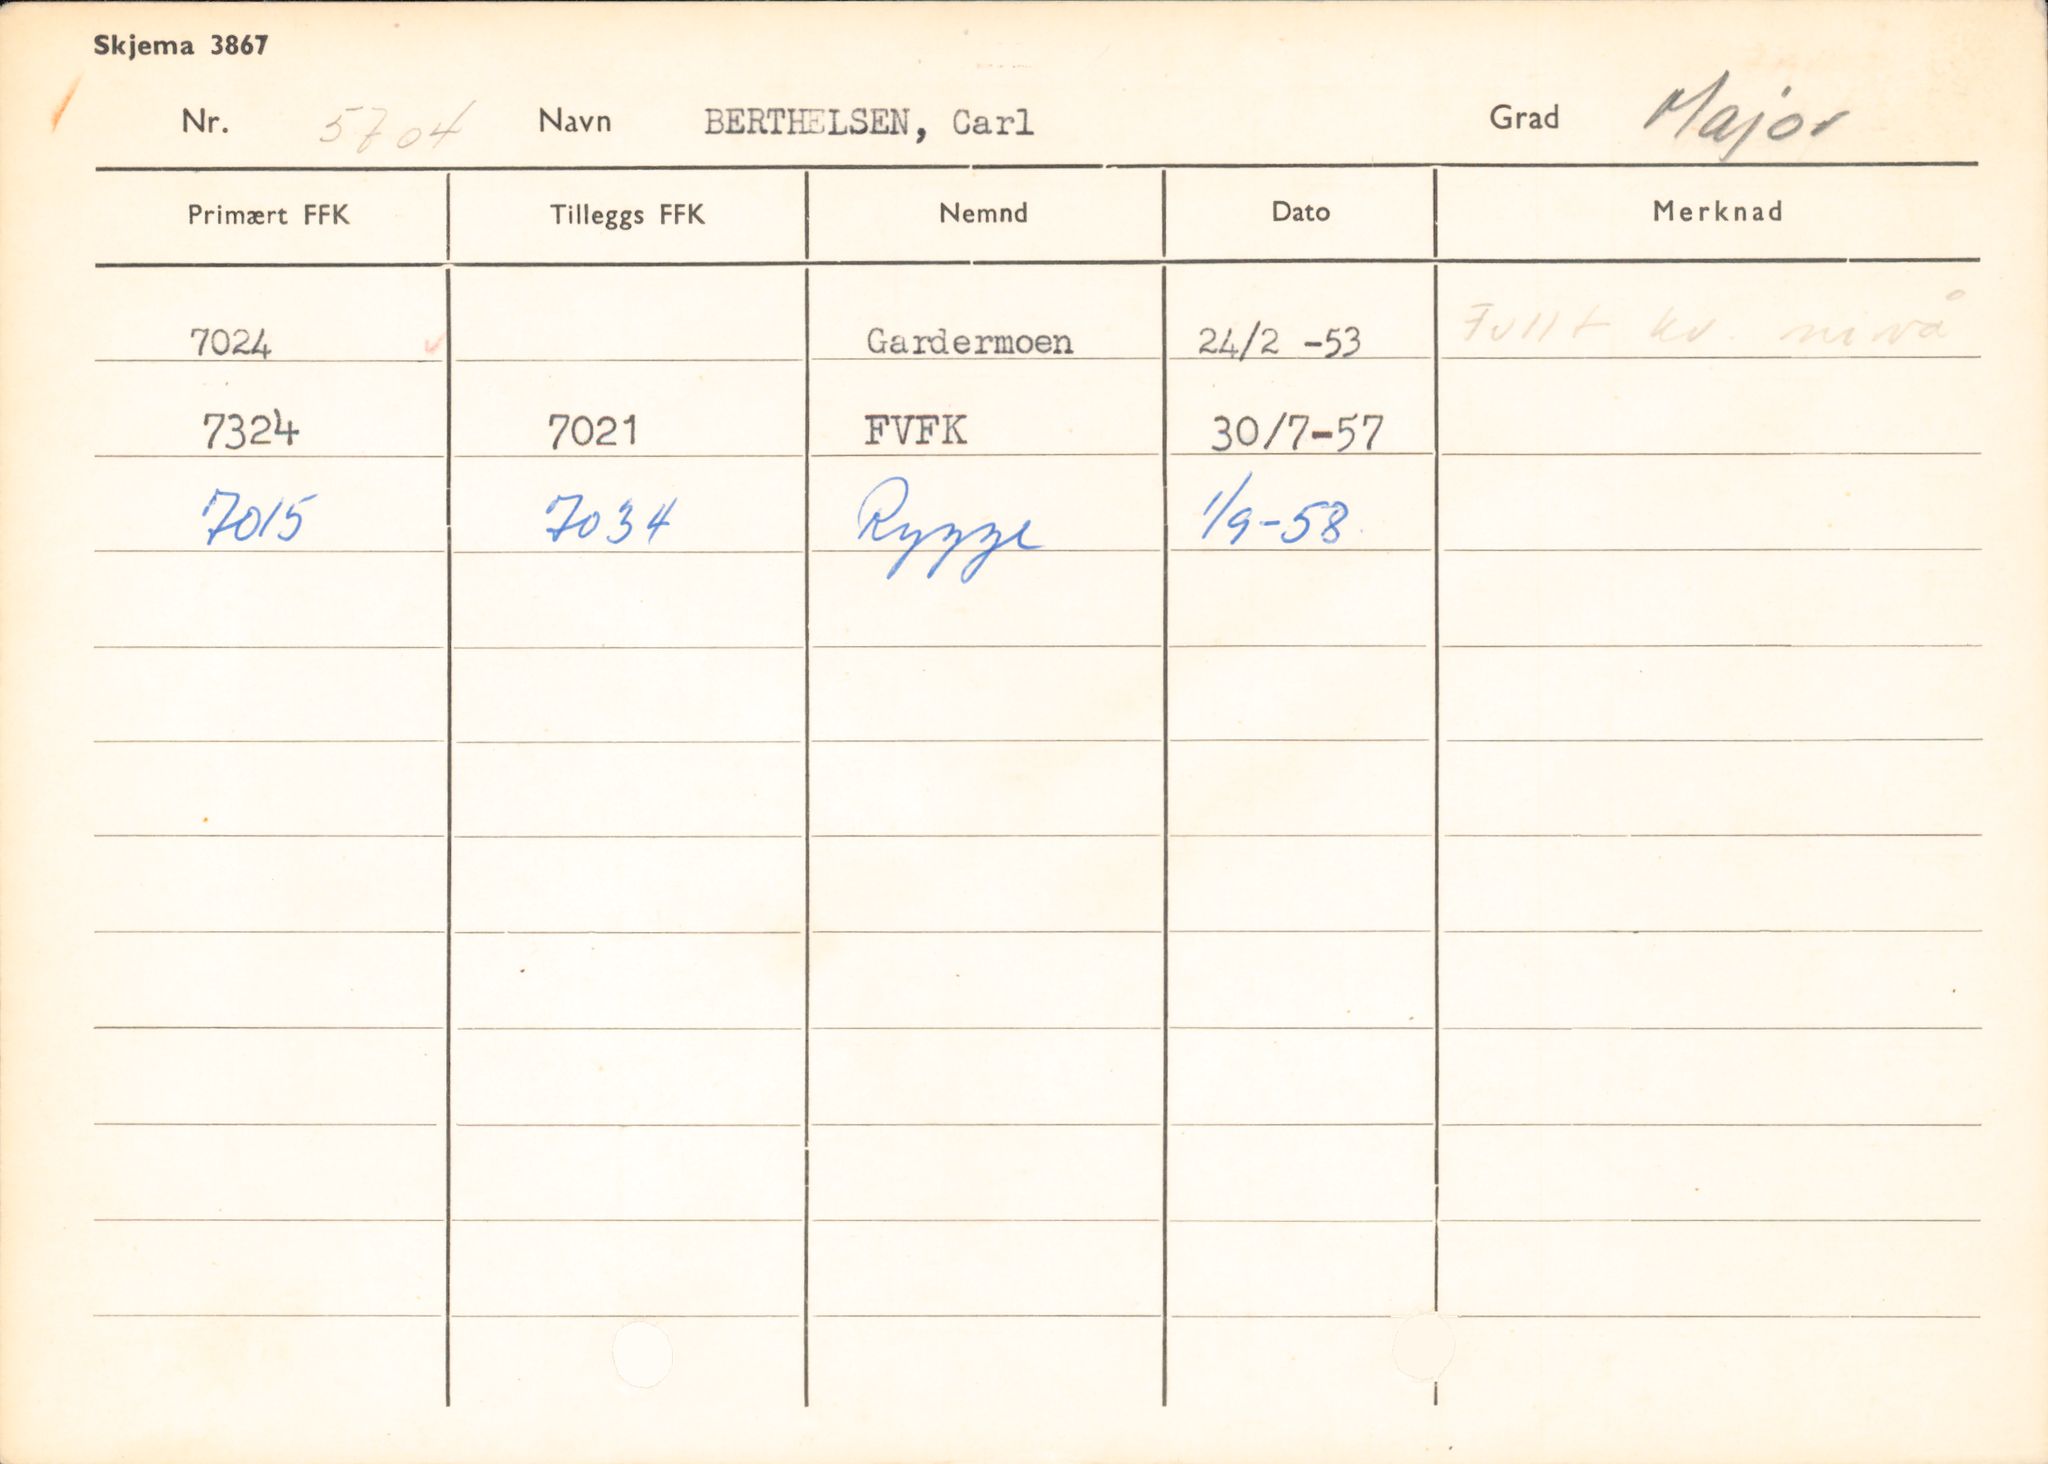 Skjema 3867
Nr. 5704 Navn BERTHELSEN, Carl Grad Major
Primært FFK Tilleggs FFK Nemnd Dato Merknad
7024 ✓ Gardermoen 24/2 -53 Fullt kv. nivå
7324 7021 FVFK 30/7-57
7015 7034 Rygge 1/9-58